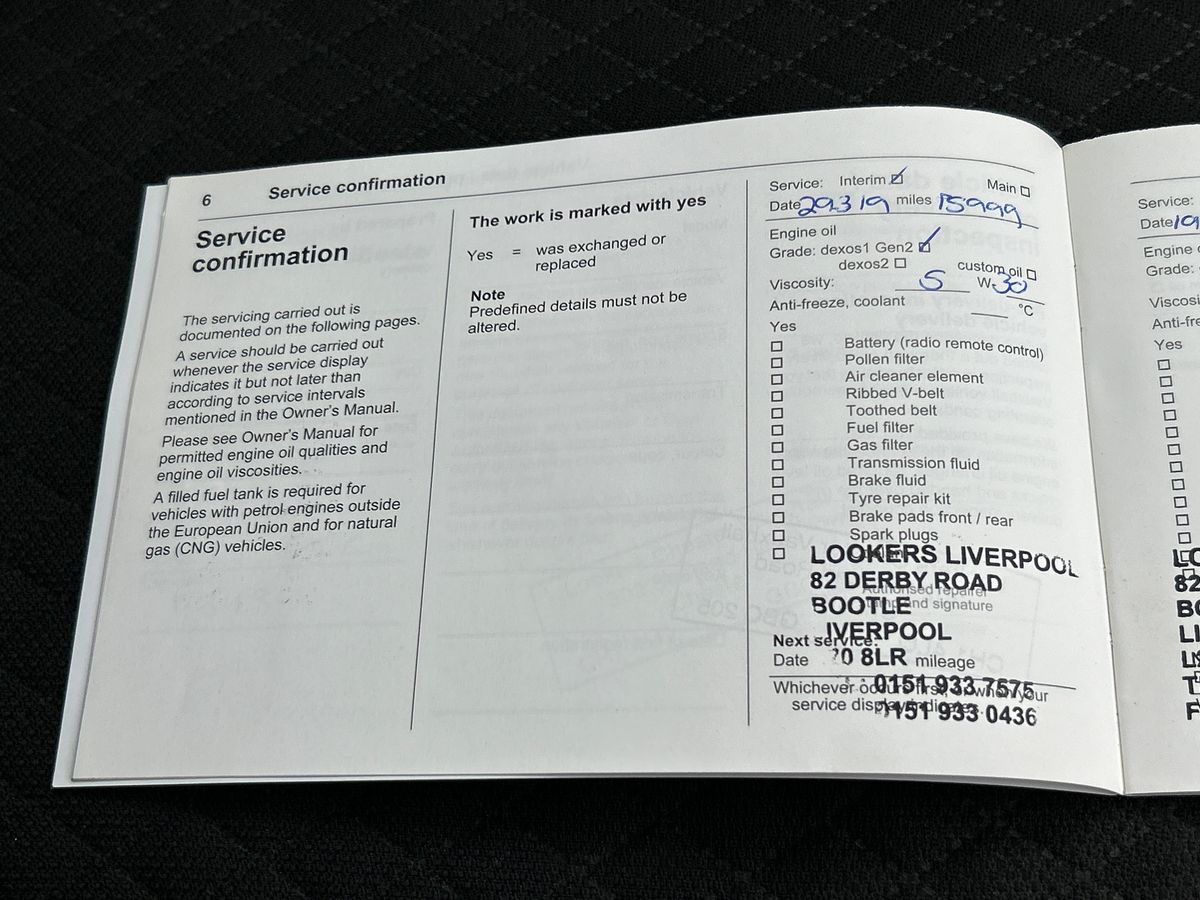 6 Service confirmation
Service
confirmation
The servicing carried out is
documented on the following pages.
A service should be carried out
whenever the service display
indicates it but not later than
according to service intervals
mentioned in the Owner's Manual.
Please see Owner's Manual for
permitted engine oil qualities and
engine oil viscosities.
A filled fuel tank is required for
vehicles with petrol engines outside
the European Union and for natural
gas (CNG) vehicles.
The work is marked with yes
Yes = was exchanged or
replaced
Note
Predefined details must not be
altered.
Service: Interim Main
Date 29.3 19 miles 15999
Engine oil
Grade: dexos1 Gen2
dexos2 custom oil
Viscosity: 5 W-30
Anti-freeze, coolant °C
Yes
Battery (radio remote control)
Pollen filter
Air cleaner element
Ribbed V-belt
Toothed belt
Fuel filter
Gas filter
Transmission fluid
Brake fluid
Tyre repair kit
Brake pads front / rear
Spark plugs
LOOKERS LIVERPOOL
82 DERBY ROAD
Authorised repairer
BOOTLE
stamp and signature
IVERPOOL
Next service:
Date 0 8LR mileage
0151 933 7575
Whichever occurs first, or when your
service display indicates.
151 933 0436
Service:
Date 19
Engine
Grade:
Yes
82